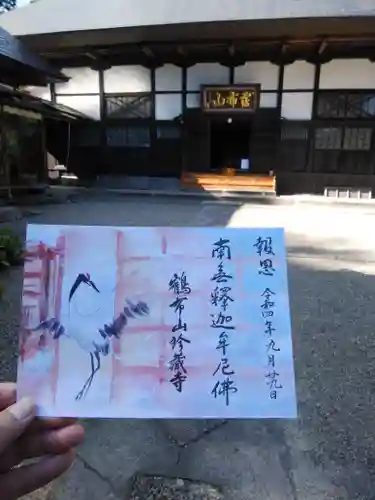 山布鶴
報恩 令和四年九月廿九日
南無釋迦牟尼佛
鶴布山珍蔵寺